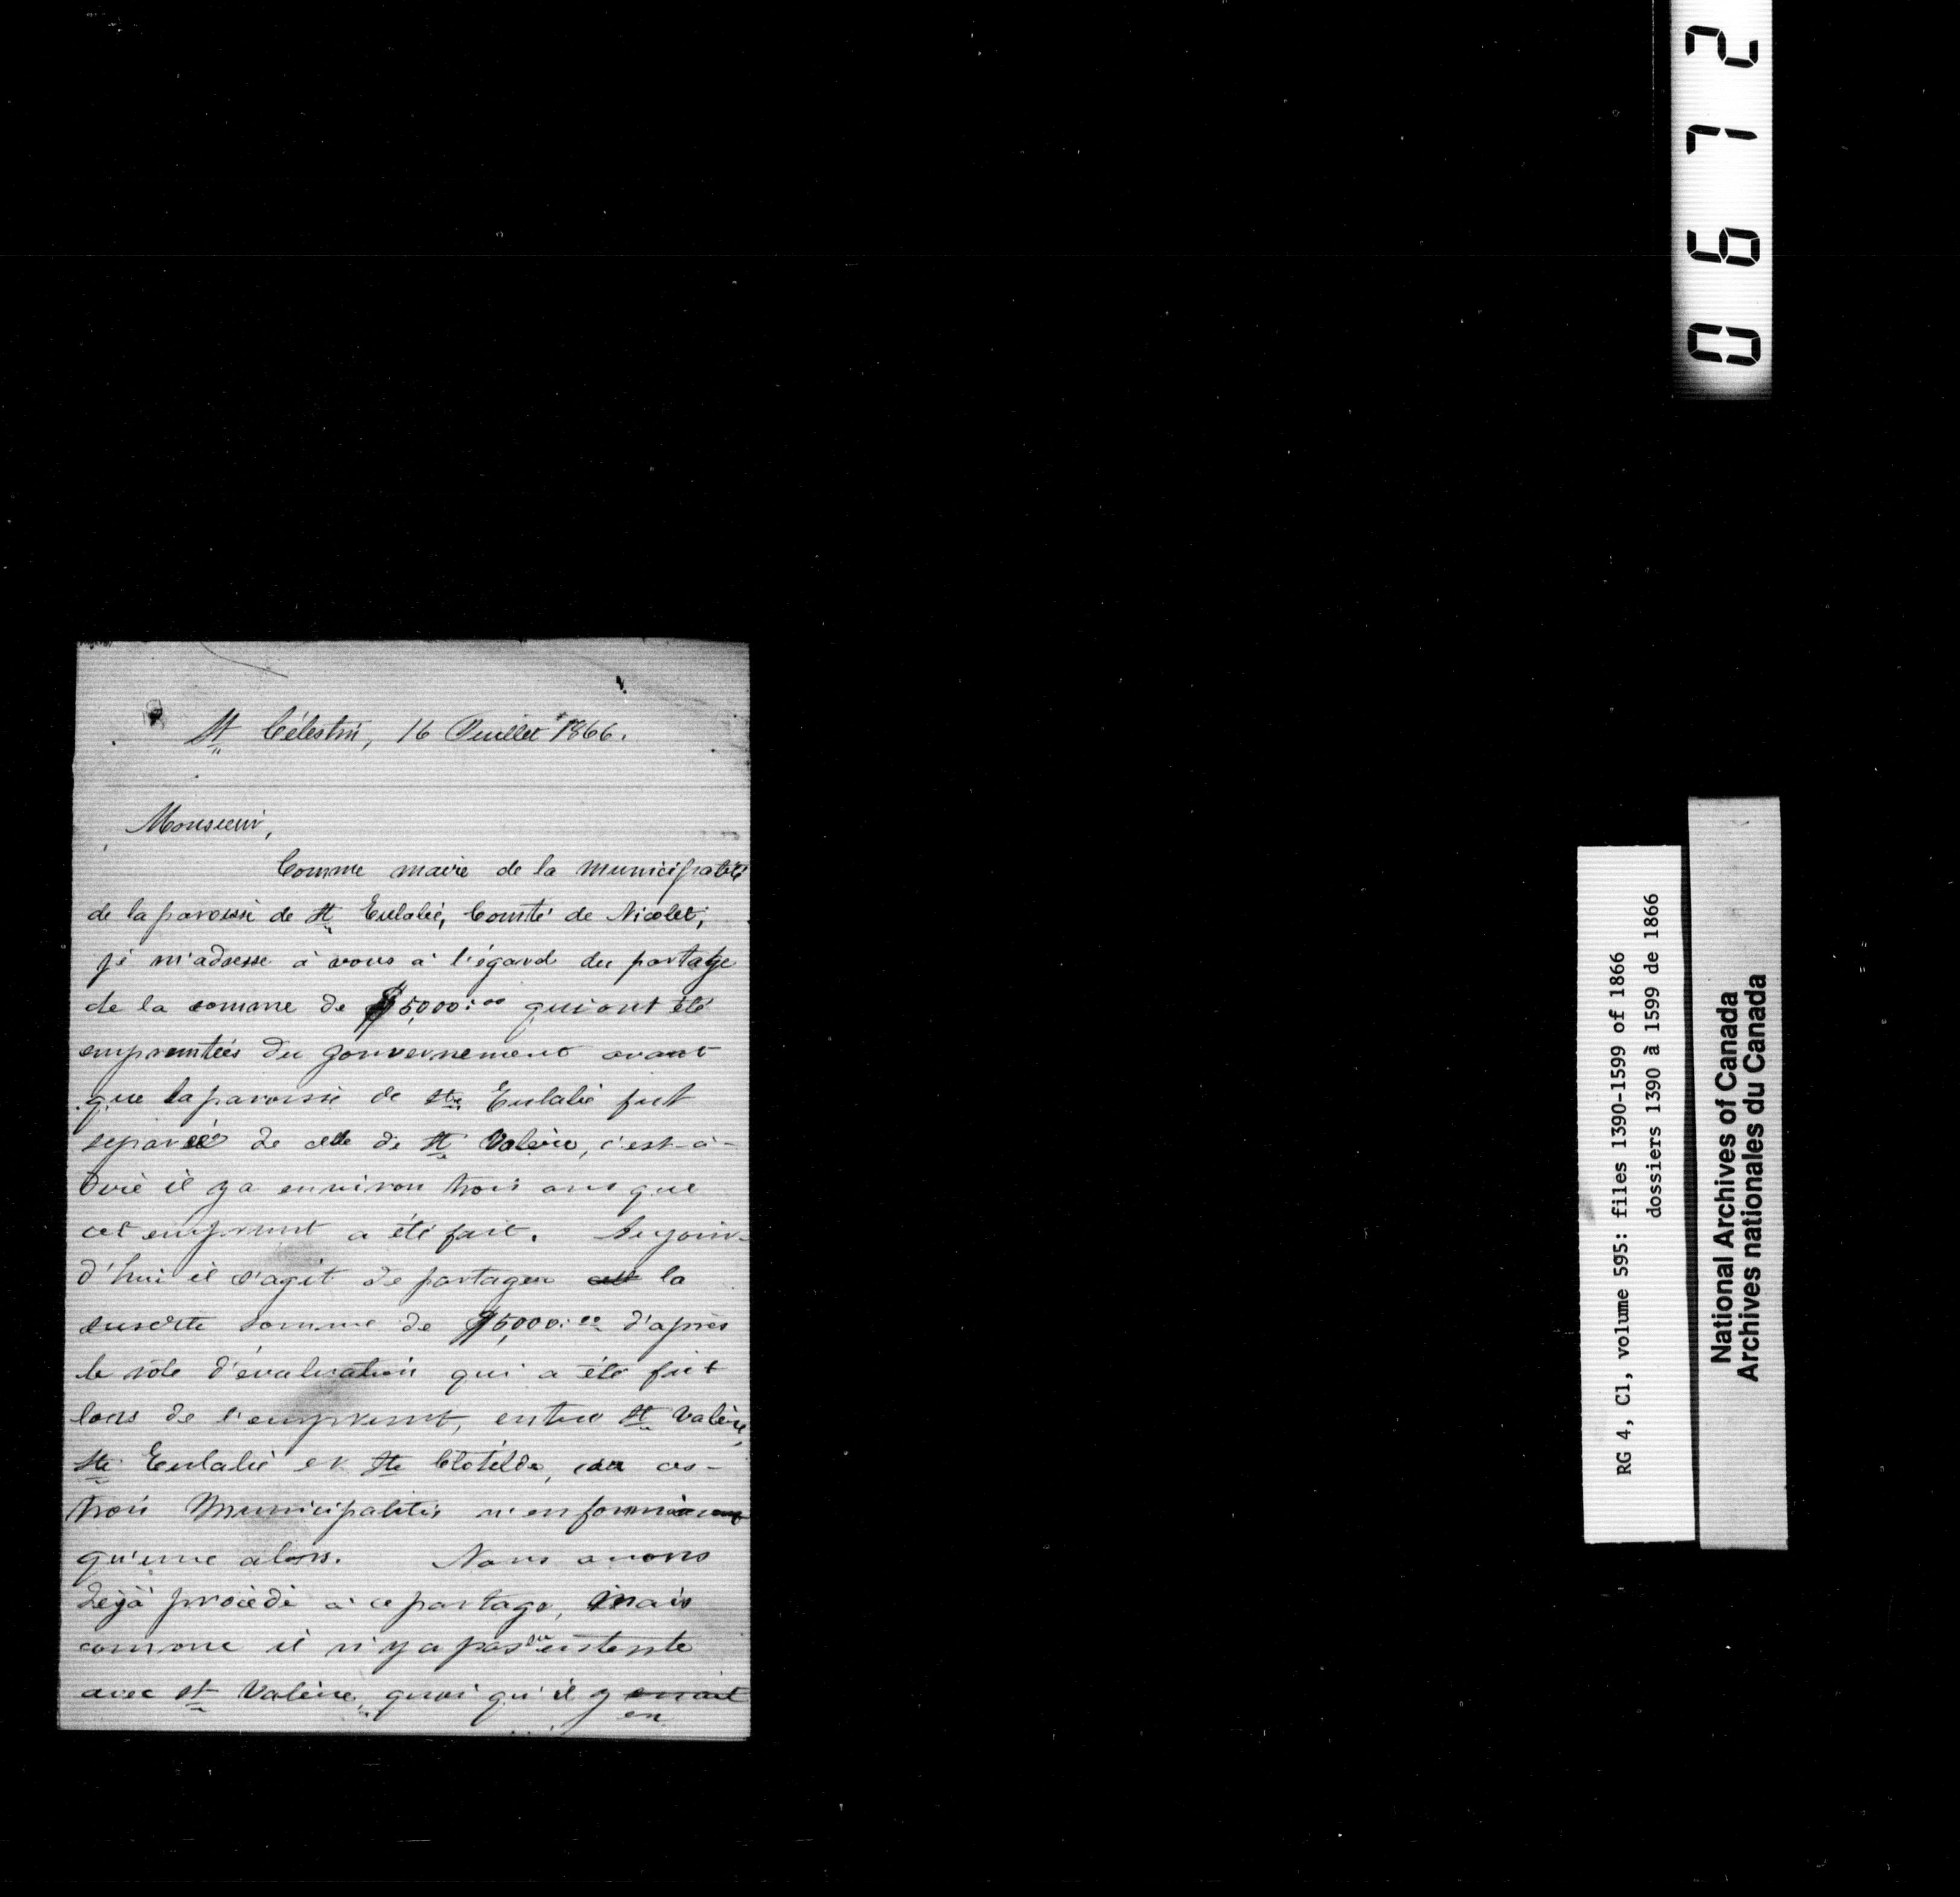 St Célestin, 16 Juillet 1866.
Monsieur,
Comme maire de la Municipalité
de la paroisse de Ste Eulalie, Comté de Nicolet,
je m'adresse à vous à l'égard du partage
de la somme de $5,000:00 qui ont été
empruntées du gouvernement avant
que la paroisse de Ste Eulalie fut
séparée de celle de St Valère, c'est-à-
dire il y a environ trois ans que
cet emprunt a été fait. Aujour-
d'hui il s'agit de partager la
susdite somme de $5,000:00 d'après
le rôle d'évaluation qui a été fait
lors de l'emprunt, entre St Valère,
Ste Eulalie et Ste Clotilde, car ces
trois Municipalités n'en formaient
qu'une alors. Nous avons
déjà procédé à ce partage, mais
comme il n'y a pas eu entente
avec St Valère, quoi qu'il y
en
0672
RG 4, C1, volume 595: files 1390-1599 of 1866
dossiers 1390 à 1599 de 1866
National Archives of Canada
Archives nationales du Canada